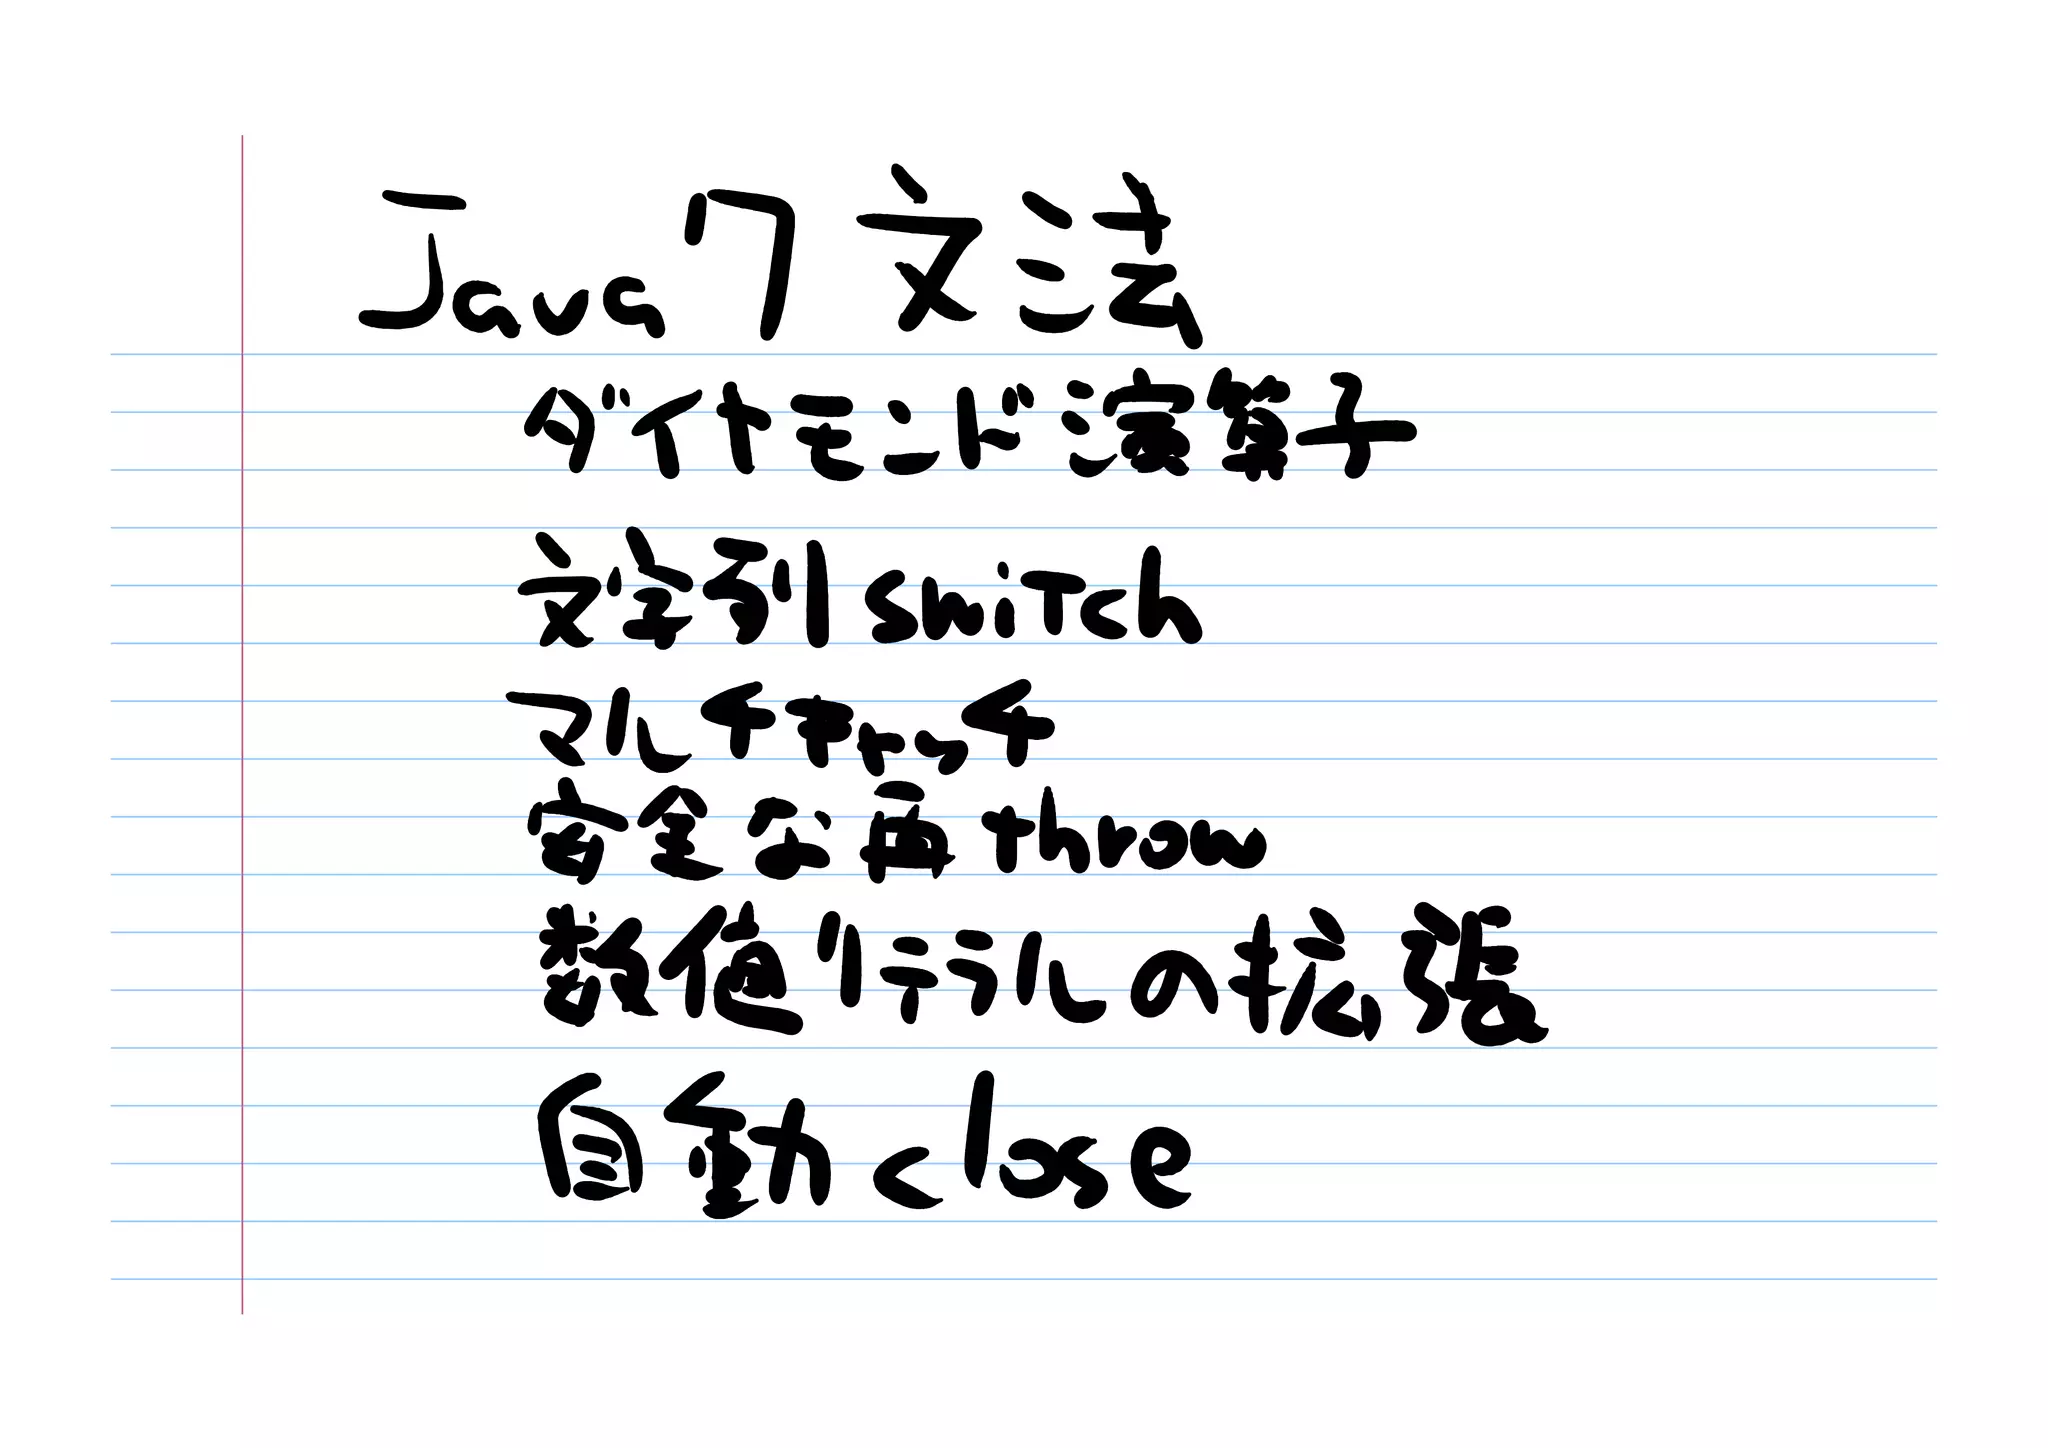 Java7文法
ダイヤモンド演算子
文字列switch
マルチキャッチ
安全な再throw
数値リテラルの拡張
自動close